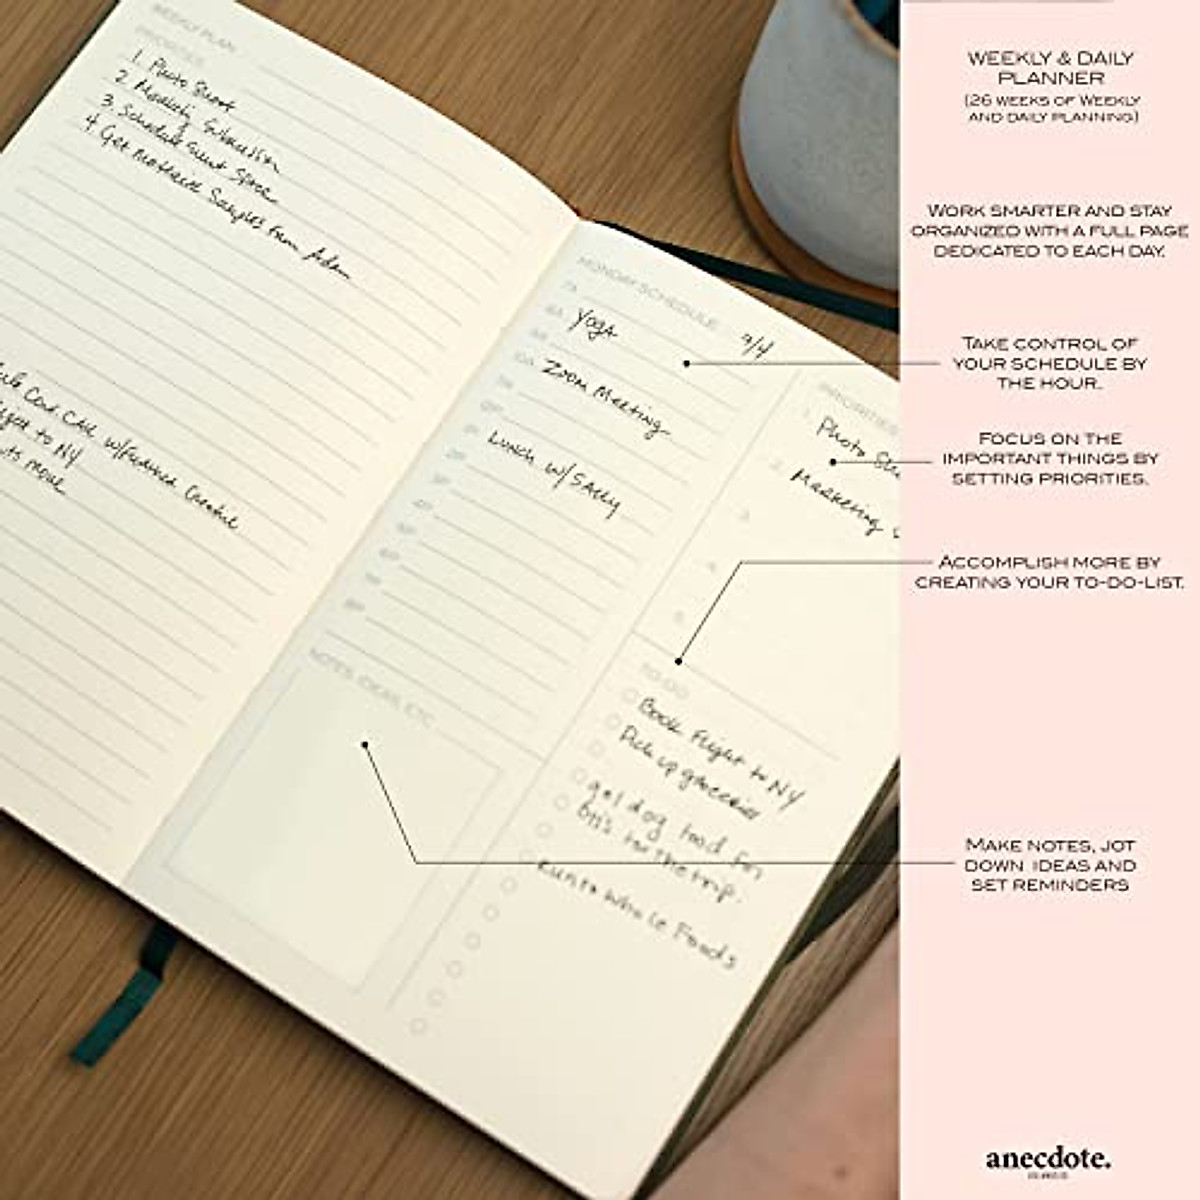 WEEKLY PLAN
PRIORITIES
1. Photo Shoot
2. Marketing Submission
3. Schedule Event Space
4. Get Materials Samples from Adam
Call w/
to NY
to
MONDAY SCHEDULE 9/4
7A
8A Yoga
9A
10A Zoom Meeting
11A
12P
1P Lunch w/ Sally
2P
3P
4P
5P
6P
7P
8P
NOTES, IDEAS, ETC
PRIORITIES
1. Photo Sh
2. Marketing
3.
4.
5.
TO-DO
Book flight to NY
Pick up groceries
get dog food for
Otis for the trip.
Run to Whole Foods
WEEKLY & DAILY
PLANNER
(26 WEEKS OF WEEKLY
AND DAILY PLANNING)
WORK SMARTER AND STAY
ORGANIZED WITH A FULL PAGE
DEDICATED TO EACH DAY.
TAKE CONTROL OF
YOUR SCHEDULE BY
THE HOUR.
FOCUS ON THE
IMPORTANT THINGS BY
SETTING PRIORITIES.
ACCOMPLISH MORE BY
CREATING YOUR TO-DO-LIST.
MAKE NOTES, JOT
DOWN IDEAS AND
SET REMINDERS
anecdote.